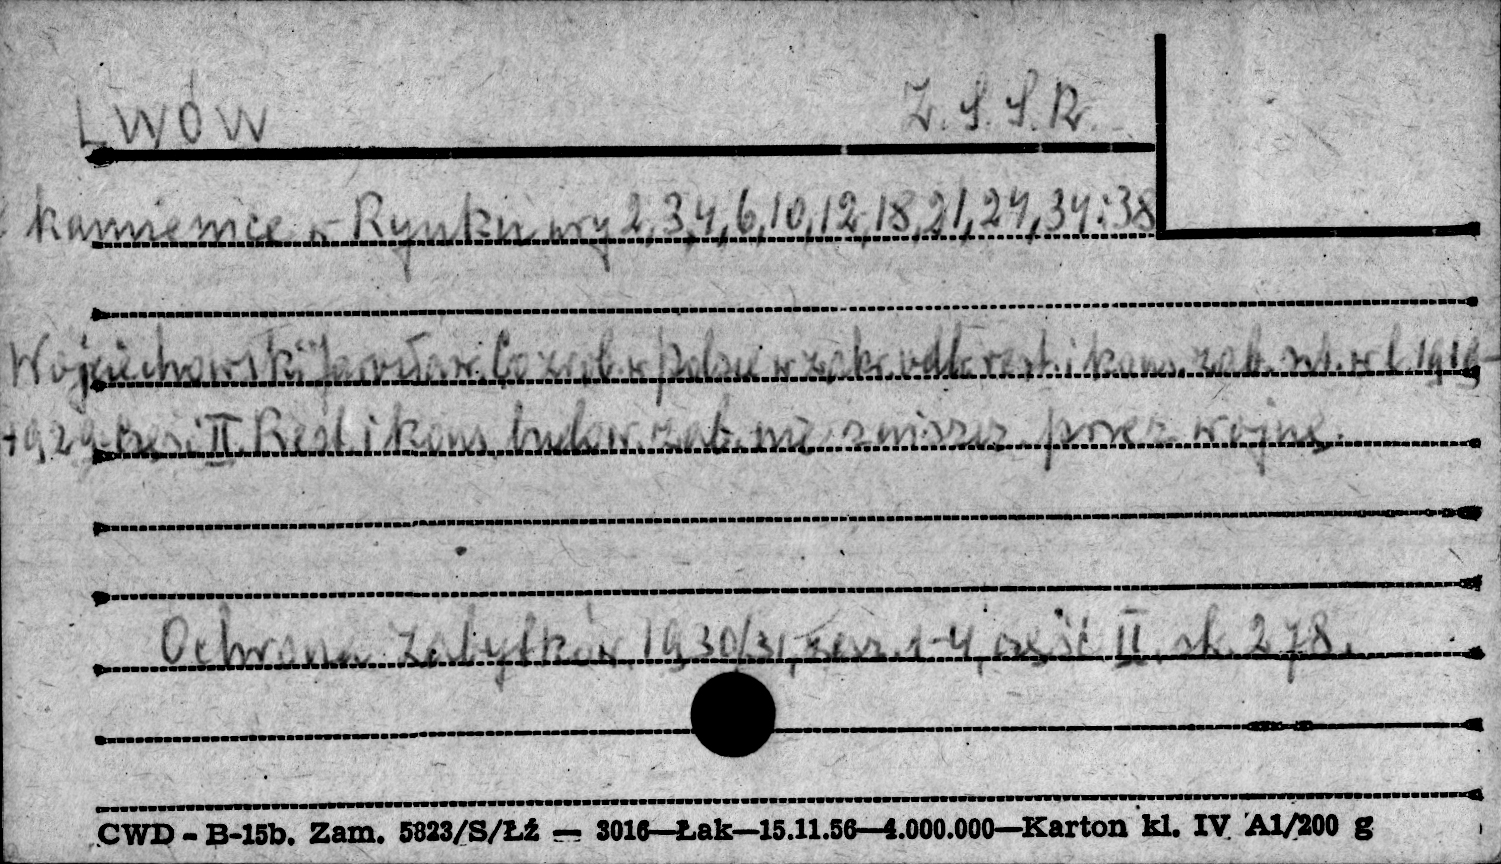 Lwów Z.S.S.R.
kamienice w Rynku nry 2,3,4,6,10,12,18,21,24,34i38
Wojciechowski Jarosław. Co zrob. w Polsce w zakr. odb. rest. i kons. zab. szt. w l. 1919-
-1929. Część II. Rest. i kons. budow. zab. nie zniszcz. przez wojnę.
Ochrona Zabytków, 1930/31, zesz. 1-4, część II. sh. 278.
CWD - B-15b. Zam. 5823/S/Łź — 3016—Łak—15.11.56—4.000.000—Karton kl. IV A1/200 g